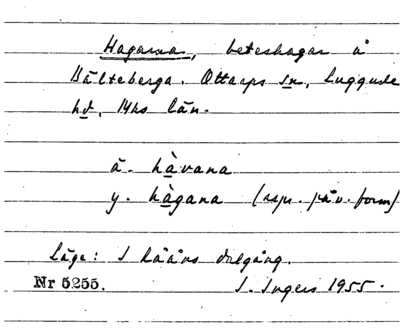 Hagarna, beteshagar å
Bälteberga. Ottarps sn, Luggude
hd, Mhs län.
ä. hàvana
y. hàgana (rspr. påv. form)
Läge: I Råååns dalgång.
Nr 5255. I. Ingers 1955.